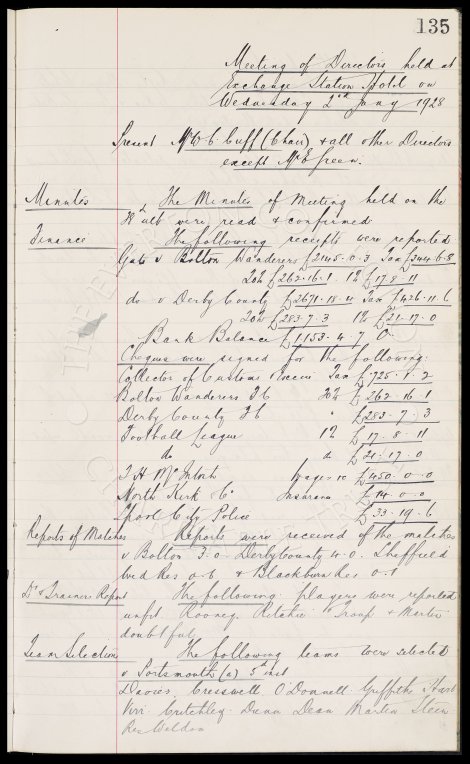 135
Meeting of Directors held at
Exchange Station Hotel on
Wednesday 2nd Jany 1929
Present Mr W. C. Cuff (Chair) & all other Directors
except Mr E Green.
Minutes The Minutes of Meeting held on the
ult were read & confirmed
Finance The following receipts were reported
Gate v Bolton Wanderers £2145.0.3 Tax £344.6.8
20% £262.16.1 1% £17.8.11
do v Derby County £2671.18.11 Tax £426.11.6
20% £283.7.3 1% £21.17.0
Bank Balance £1153.4.7
Cheques were signed for the following:
Collector of Customs & Excise Tax £725.1.2
Bolton Wanderers FC 20% £262.16.1
Derby County FC " £283.7.3
Football League 1% £17.8.11
do " £21.17.0
T. H. McIntosh Wages £450.0.0
North Kirk & Co Insurance £14.0.0
L'pool City Police £33.19.6
Reports of Matches Reports were received of the matches
v Bolton 3.0. Derby County 4.0. Sheffield
Wed Res 0.6 & Blackburn Res 0.1
Dr & Trainers Report The following players were reported
unfit Rooney, Ritchie & Troup & Martin
doubtful
Team Selection The following teams were selected
v Portsmouth (a) 5th inst
Davies Cresswell O'Donnell Griffiths Hart
Virr Critchley Dunn Dean Martin Stein
Res Weldon